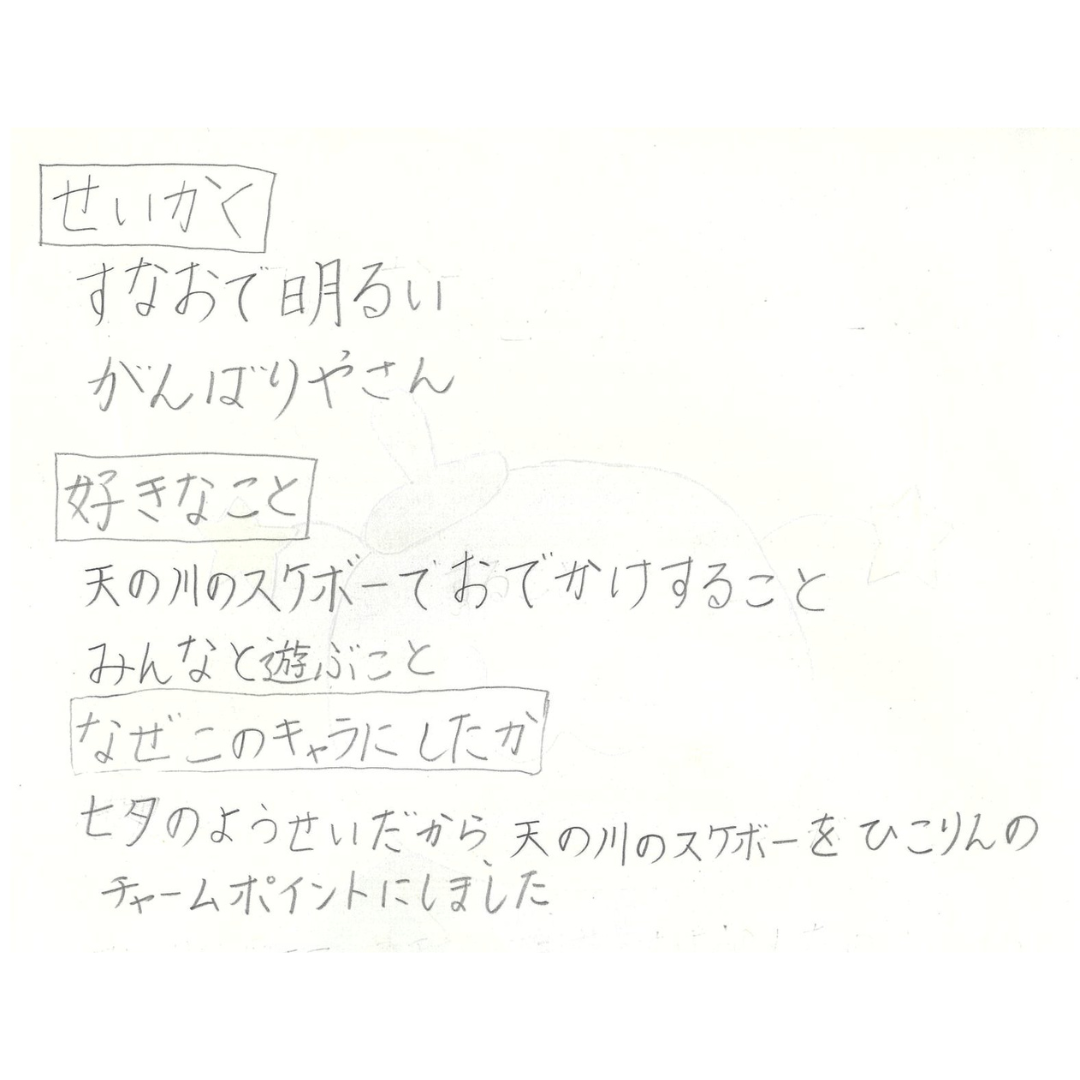 せいかく
すなおで明るい
がんばりやさん
好きなこと
天の川のスケボーでおでかけすること
みんなと遊ぶこと
なぜこのキャラにしたか
七夕のようせいだから、天の川のスケボーをひこりんの
チャームポイントにしました